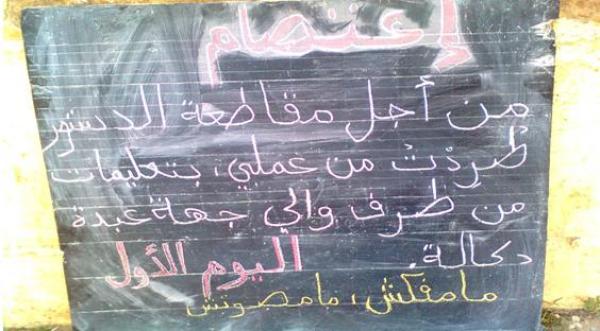 إعتصام
من أجل مقاطعة الدستور
طُرِدْتُ من عملي، بتعليمات
من طرف والي جهة عبدة
دكالة. اليوم الأول
مامفكش، مامصوتش